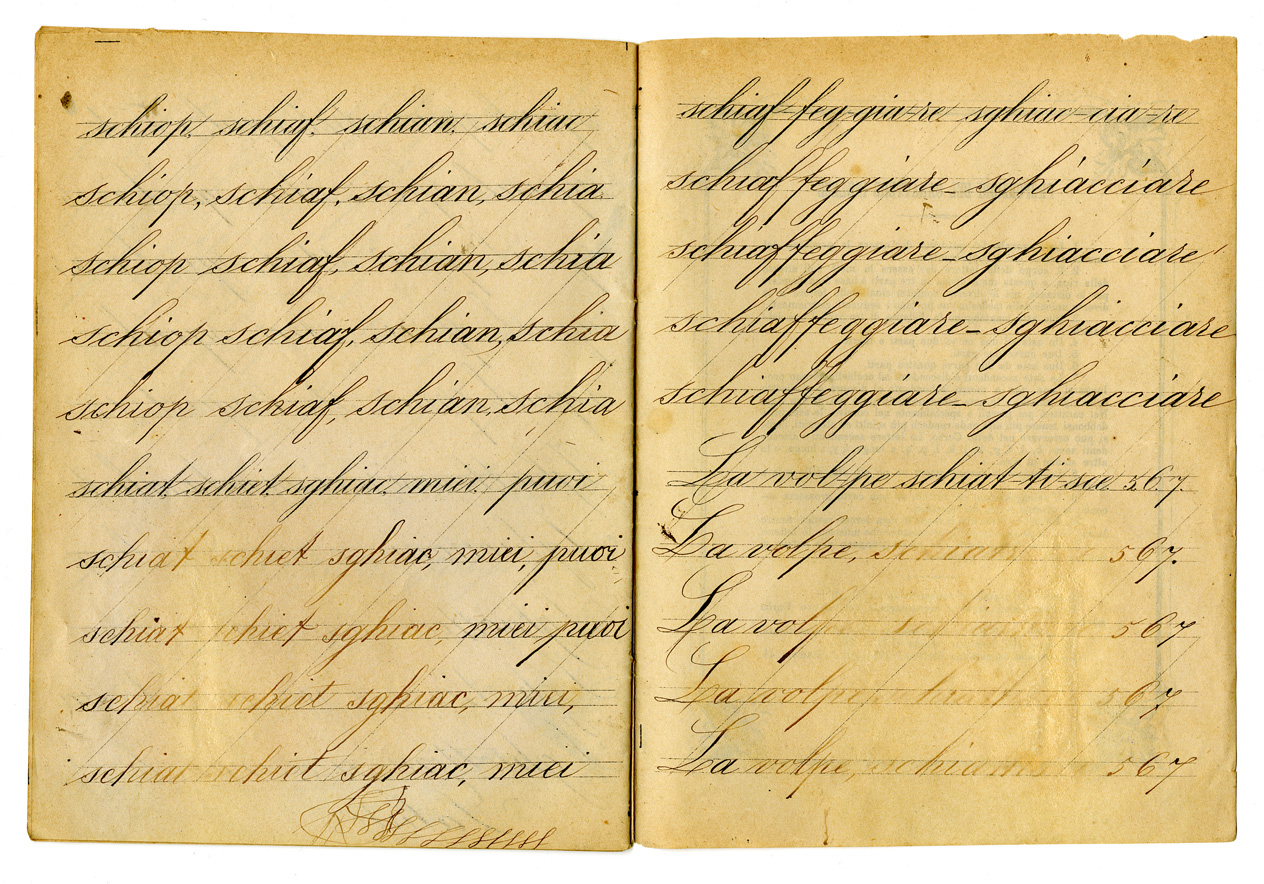 schiop. schiaf. schian. schiac
schiop, schiaf, schian, schia
schiop schiaf, schian, schia
schiop schiaf, schian, schia
schiop schiaf, schian, schia
schiat. schiet. sghiac. miei. puoi
schiat schiet sghiac, miei, puoi
schiat schiet sghiac, miei puoi
schiat schiet sghiac, miei,
schiat schiet sghiac, miei
schiaf-feg-gia-re sghiac-cia-re
schiaffeggiare- sghiacciare
schiaffeggiare- sghiacciare
schiaffeggiare- sghiacciare
schiaffeggiare- sghiacciare
La vol-pe schiat-ti-sce. 567.
La volpe, 567.
La volpe 567
La volpe, 567
La volpe, 567